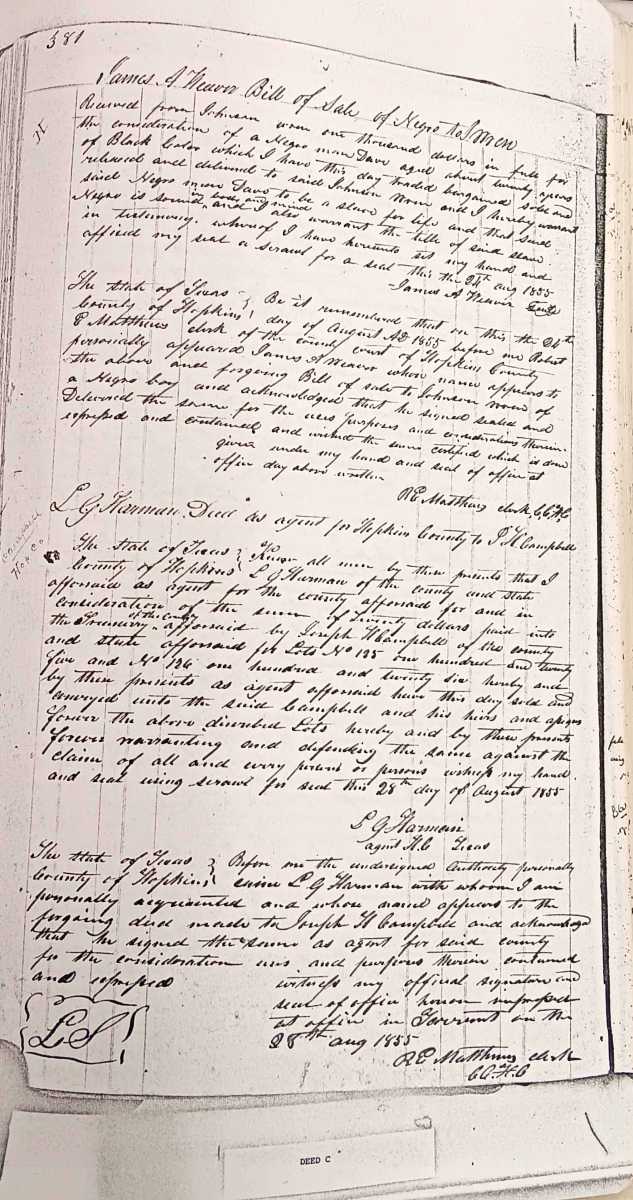 381
James A Weaver Bill of Sale of Negro to J Wren
Received from Johnson Wren one thousand dollars in full for
the consideration of a Negro man Dave aged about twenty years
of Black Color which I have this day traded bargained sold and
released and delivered to said Johnson Wren and I hereby warrant
said Negro man Dave to be a slave for life and that said
Negro is sound body and mind and I also warrant the title of said slave
in testimony whereof I have hereunto set my hand and
affixed my seal a scrawl for a seal this the 24th aug 1855
James A Weaver
The State of Texas } Be it remembered that on this the 24th
County of Hopkins } day of August AD 1855 before me Robert
E Matthews clerk of the county court of Hopkins County
personally appeared James A Weaver whose name appears to
the above and forgoing Bill of sale to Johnson Wren of
a Negro boy and acknowledged that he signed sealed and
Delivered the same for the uses purposes and considerations therein
expressed and contained and wished the same certified which is done
given under my hand and seal of office at
office day above written
R E Matthews clerk C C H C
L G Harman Deed as agent for Hopkins County to J H Campbell
The State of Texas } Know all men by these presents that I
County of Hopkins } L G Harman of the county and state
afforsaid as agent for the county afforsaid for and in
consideration of the sum of Twenty dollars paid into
the Treasury of the County afforsaid by Joseph H Campbell of the county
and state afforsaid for Lots No 125 one hundred and twenty
five and No 126 one hundred and twenty six hereby and
by these presents as agent afforsaid have this day sold and
conveyed unto the said Campbell and his heirs and assigns
forever the above discribed Lots hereby and by these presents
forever warranting and defending the same against the
claim of all and every person or persons witness my hand
and seal using scrawl for seal this 28th day of August 1855
L G Harman
agent H.C Texas
The State of Texas } Before me the undersigned Authority personally
County of Hopkins } came L G Harman with whom I am
personally acquainted and whose name appears to the
forgoing deed made to Joseph H Campbell and acknowledged
that he signed the same as agent for said county
for the consideration uses and purposes therein contained
and expressed witness my official signature and
seal of office hereon impressed
at office in Tarrant on the
28th aug 1855
L S
R E Matthews clerk
C C H C
DEED C